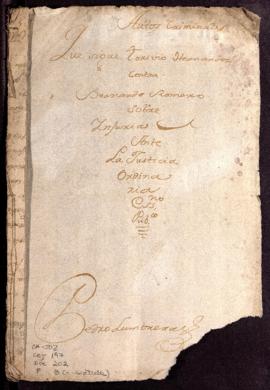 Autos Criminales
Que sigue Torivio Hernandez
contra
Bernardo Romero
Sobre
Injurias
Ante
La Justicia
Ordina
ria
Pubco
Pedro Lumbreras
CA-JO2
Leg 197
Doc 202
F